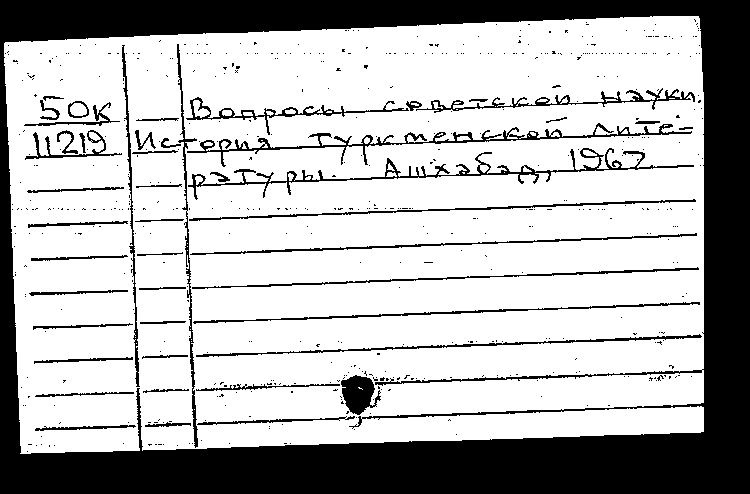 50к Вопросы советской науки.
11219 История туркменской лите-
ратуры. Ашхабад, 1967